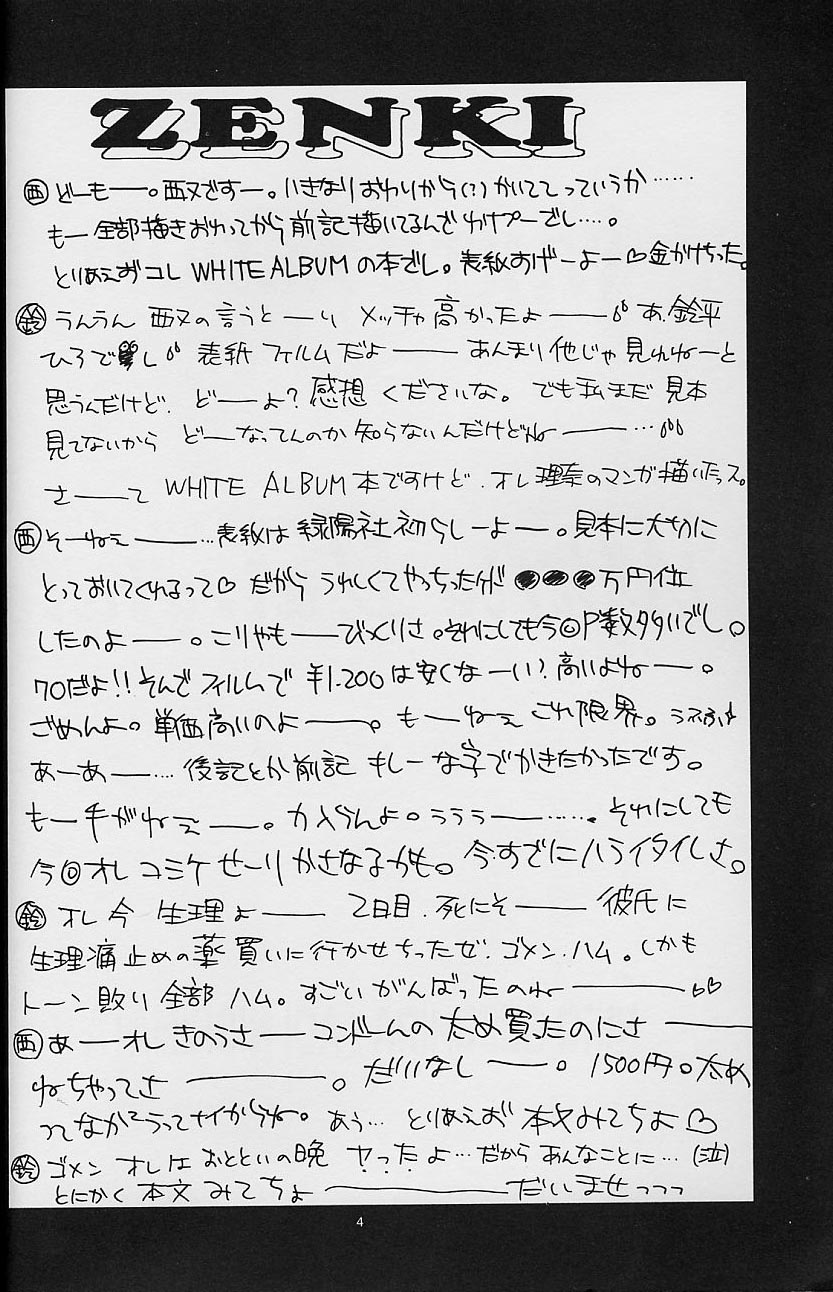 ZENKI
㊄ どーもー。西又ですー。いきなりおわりから(?)かいててっていうか……
もー全部描きおわってから前記描いてるんでわけプーでし…。
とりあえおコレ WHITE ALBUMの本でし。表紙すげーよー♡金かけちった。
鈴 うんうん 西又の言うとーり メッチャ高かったよー あ、鈴平
ひろでし 表紙フィルムだよー あんまり他じゃ見れねーと
思うんだけど、どーよ?感想くださいな。でも私まだ見本
見てないから どーなってんのか知らないんだけどねー…
さーて WHITE ALBUM本ですけど、オレ理奈のマンガ描いたっス。
西 そーねぇー…表紙は緑陽社初らしーよー。見本に大切に
とっておいてくれるって♡ だから うれしくてやっちったけど ●●●万円位
したのよー。こりゃもーびっくりさ。それにしても今回P数多いでし。
70だよ!!そんでフィルムで ¥1.200は安くなーい?高いよねー。
ごめんよ。単価高いのよー。もーねぇ これ限界。
あーあー…後記とか前記 もしーな字でかきたかったです。
もー手がねぇー。力入らんよ。うううー……。それにしても
今回オレコミケせーりかさなるかも。今すでにハライタイしさ。
鈴 オレ今 生理よー 2日目、死にそー 彼氏に
生理痛止めの薬買いに行かせちったぜ、ゴメン、ハム。しかも
トーン貼り全部ハム。すごいがんばったのねー♡♡
西 あーオレきのうさーコンドームの太め買ったのにさー
ねちゃってさー。だいなしー。1500円。太め
ってなかなかうってナイからね。あぅ… とりあえお本文みてちょ♡
鈴 ゴメン オレはおとといの晩ヤったよ…だからあんなことに…(泣)
とにかく本文みてちょー だいませっっっ
4